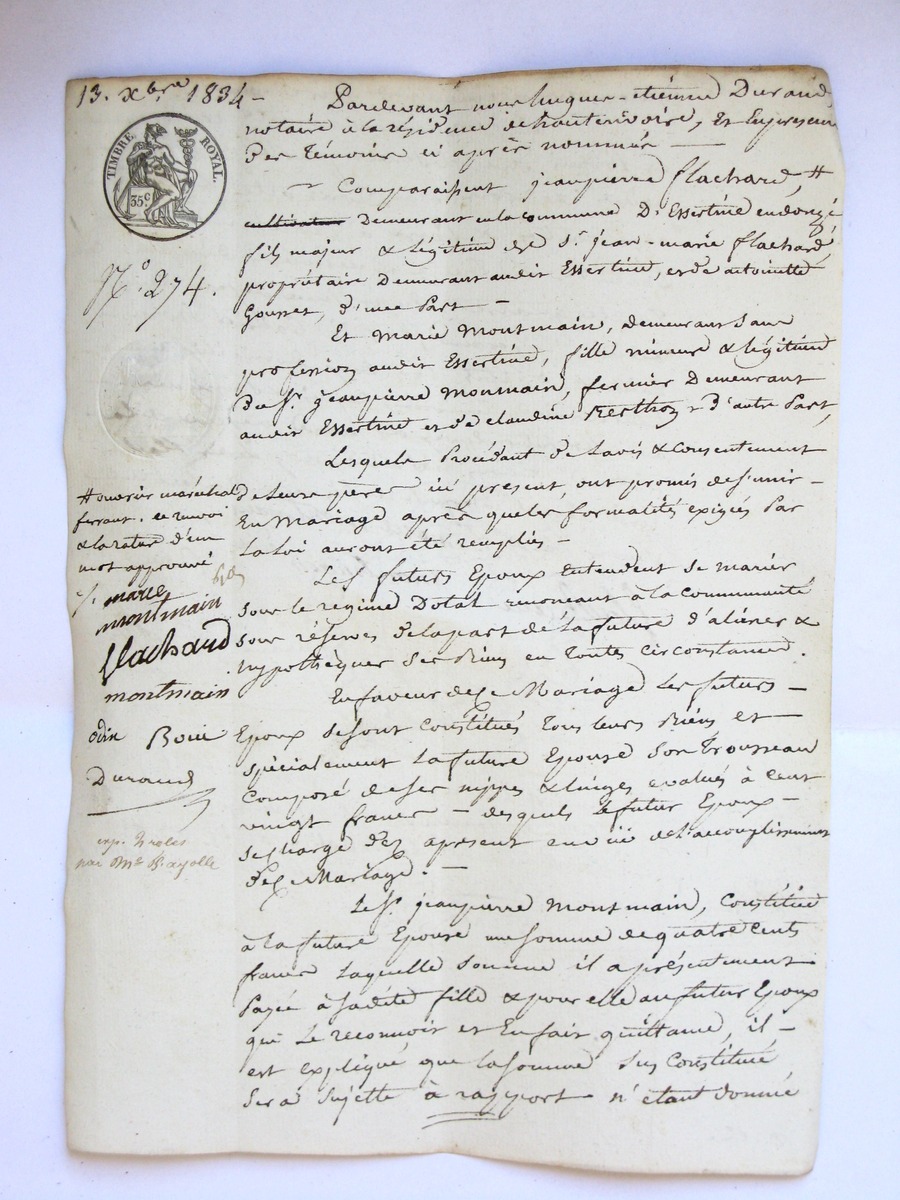 13. Xbre 1834 –
TIMBRE ROYAL.
35c
N.° 274.
Pardevant nous hugues-étienne Durand,
notaire à la résidence de hauterivoire, et En presence
Des Témoins ci après nommés —
Comparaissent jeanpierre flachard, #
cultivateur Demeurant en la commune D'Essertine endonzé
fils majeur & légitime de Sr. jean-marie flachard,
propriétaire Demeurant audit Essertine, et de antoinette
Gouret, d'une Part –
Et Marie Montmain, demeurant sans
profession audit Essertine, fille mineure & légitime
Du Sr. jeanpierre Monmain, fermier Demeurant
audit Essertine et de claudine Berthoz d'autre Part,
Lesquels Procédant De Lavis & consentement
De leurs pères ici present, ont promis de s'unir –
En Mariage après que les formalités exigées Par
La loi auront été remplies –
Les futurs Epoux Entendent se marier
sous le regime Dotal renonçant à la communauté
sous réserves De la part de La future d'aliéner &
hypothéquer ses Biens en Toutes circonstances.
En faveur de ce Mariage Les futurs –
Epoux se sont constitués Tous leurs Biens et
spécialement La future Epouse son Trousseau
composé de ses nippes & linges evalués à cent
vingt francs – desquels le futur Epoux –
se charge dès apresent en vüe de l'accomplissement
De ce Mariage. –
Le Sr. jeanpierre Montmain, constitue
à la future Epouse une somme de quatre cents
francs Laquelle somme il a présentement
Payée à sadite fille & pour elle au futur Epoux
qui Le reconnoit et En fait quittance, il –
est expliqué que la somme sus constituée
sera sujette à rapport n'étant donnée
# ouvrier maréchal
ferrant. ce renvoi
& la rature d'un
mot approuvé
marie
montmain
flachard
montmain
odin Boiu
Durand
exp. 2 roles
par Me Bayolle